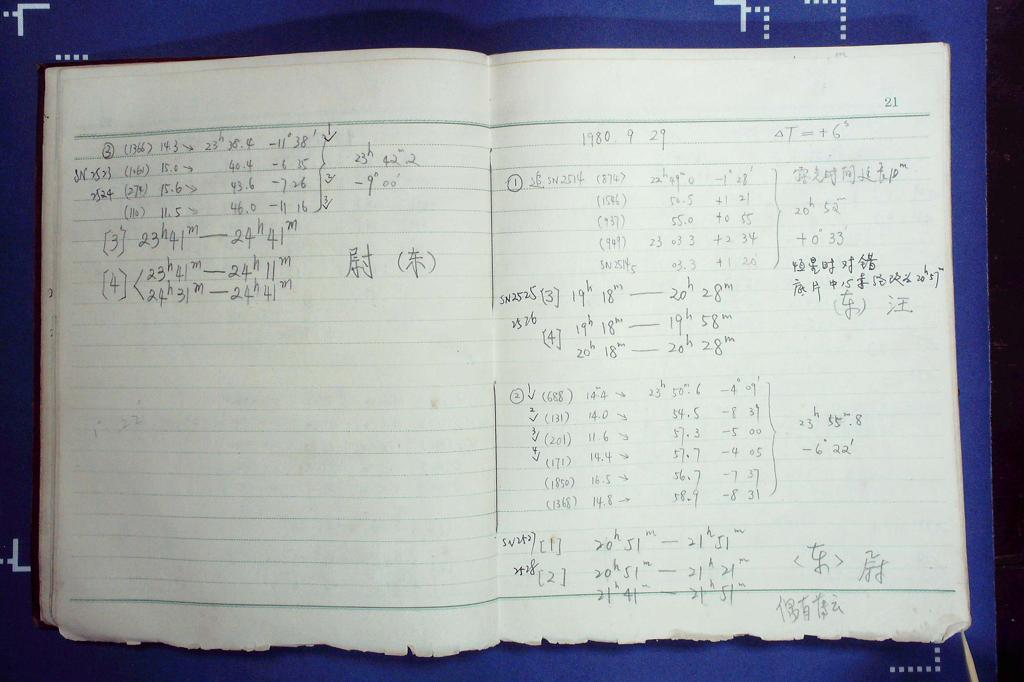 ③ (1366) 14.3 → 23ʰ 38.4 -11° 38′
SN2523 (1061) 15.0 → 40.4 -6 35
2524 (274) 15.6 → 43.6 -7 26
(110) 11.5 → 46.0 -11 16
23ʰ 42ᵐ 2
-9° 00′
[3] 23ʰ41ᵐ — 24ʰ41ᵐ
[4] 23ʰ41ᵐ — 24ʰ11ᵐ
24ʰ31ᵐ — 24ʰ41ᵐ
尉 (东)
21
1980. 9. 29 ΔT=+6ˢ
① 追 SN2514 (874) 22ʰ49ᵐ0 -1° 28′
(1546) 50.5 +1 21
(937) 55.0 +0 55
(949) 23 03.3 +2 34
SN2514₅ 03.3 +1 20
露光时间 10ᵐ
20ʰ 52ᵐ
+0° 33′
恒星时对错
底片中 20ʰ57ᵐ
(东) 汪
SN2525 [3] 19ʰ 18ᵐ — 20ʰ 28ᵐ
2526 [4] 19ʰ 18ᵐ — 19ʰ 58ᵐ
20ʰ 18ᵐ — 20ʰ 28ᵐ
② 1 (688) 14.4 → 23ʰ 50ᵐ.6 -4° 09′
2 (131) 14.0 → 54.5 -8 39
3 (201) 11.6 → 57.3 -5 00
4 (171) 14.4 → 57.7 -4 05
(1850) 16.5 → 56.7 -7 37
(1368) 14.8 → 58.9 -8 31
23ʰ 55ᵐ.8
-6° 22′
SN2527 [1] 20ʰ51ᵐ — 21ʰ51ᵐ
2528 [2] 20ʰ51ᵐ — 21ʰ21ᵐ
21ʰ41ᵐ — 21ʰ51ᵐ
〈东〉 尉
偶有薄云